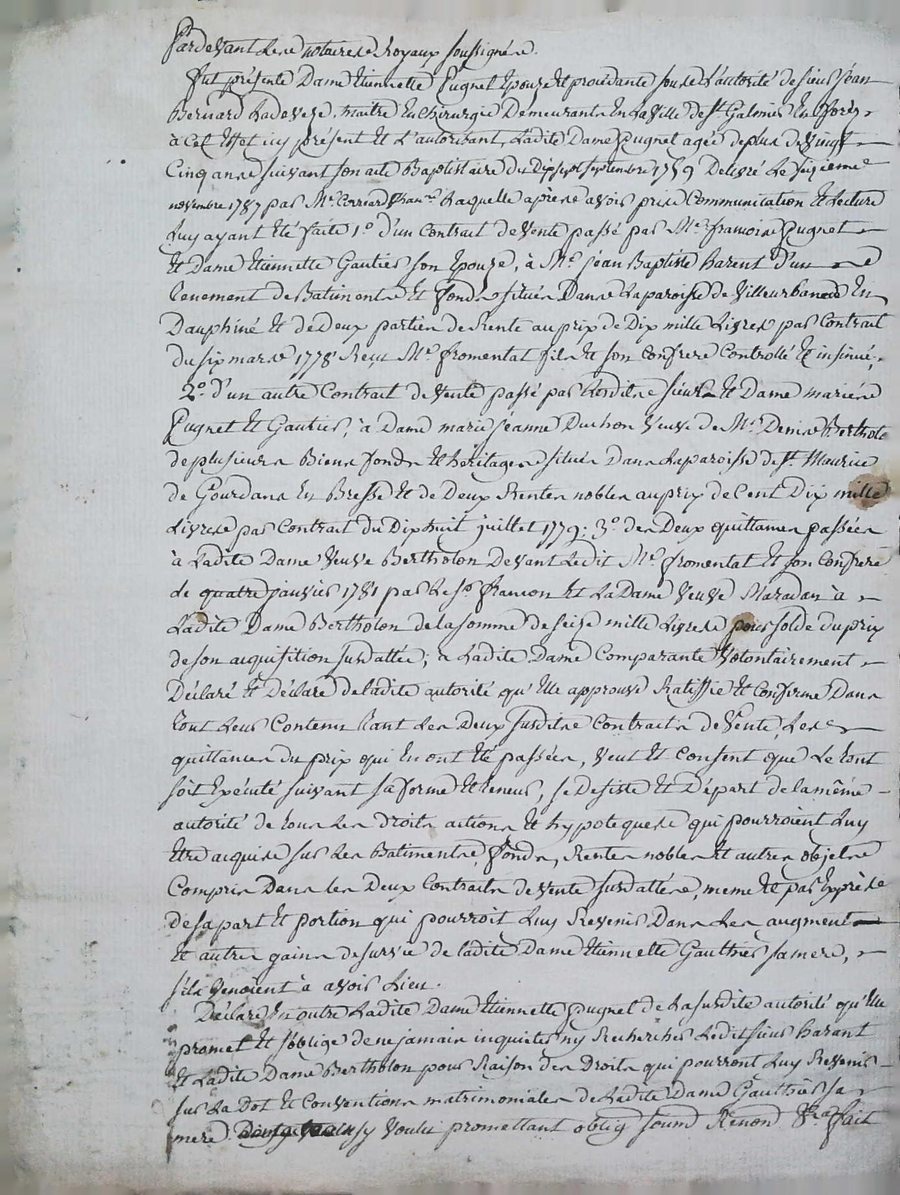 Pardevant les notaires Royaux soussignés.
Fut présente Dame Etiennette Pugnet Epouse Et procedante sous L'autorité de sieur Jean
Bernard Ladeveze, maitre En chirurgie Demeurante En La Ville de St Galmier En forés
à Cet Effet icy présent Et L'autorisant, Ladite Dame Pugnet agée de plus de Vingt
Cinq ans suivant son acte Baptistaire du Dix sept septembre 1759 Delivré Le sixieme
novembre 1787 par Mr. Laquelle après avoir prise Communication Et Lecture
Luy ayant Eté faite 1.º d'un Contrat de Vente passé par Mr. francois Pugnet
Et Dame Etiennette Gautier son Epouse, à Mr. Jean Baptiste harent d'un
tenement de Batiments Et fonds situés Dans La paroisse de Villeurbanne En
Dauphiné Et de Deux parties de Rente au prix de Dix mille Livres par Contrat
du six mars 1778 Reçu Me. fromentat fils Et son Confrere Controllé Et insinué;
2.º d'un autre Contrat de Vente passé par Lesdits sieur Et Dame mariés
Pugnet Et Gautier, à Dame marie Jeanne Duchon Veuve de Mr. Denis Bertholo
de plusieurs Biens fonds Et héritages situés Dans La paroisse de St. Maurice
de Gourdans En Bresse Et de Deux Rentes nobles au prix de Cent Dix mille
Livres par Contrat du Dix huit juillet 1779; 3.º des Deux quittances passées
à Ladite Dame Veuve Bertholon Devant Ledit Me. fromentat Et son Confrere
de quatre janvier 1781 par Le sr. francon Et La Dame Veuve Maradan à
Ladite Dame Bertholon de la somme de seize mille Livres pour solde du prix
de son acquisition susdattée; a Ladite Dame Comparante Volontairement
Déclaré Et Déclare de ladite autorité qu'Elle approuve Ratiffie Et Confirme Dans
tout Leur Contenu tant Les Deux susdites Contrats de Vente, Les
quittances du prix qui En ont Eté passées, Veut Et Consent que Le tout
soit Exécuté suivant sa forme Et teneur, se Desiste Et Départ de la même
autorité de tous Les droits actions Et hypoteques qui pourroient Luy
Etre acquis sur Les Batiments, fonds, Rentes nobles Et autres objets
Compris Dans les Deux Contrats de Vente susdattés, meme Et par Exprès
de sa part Et portion qui pourroit Luy Revenir Dans Les augment
Et autres gains de survie de ladite Dame Etiennette Gauthier sa mere,
s'ils Venoient à avoir Lieu.
Déclare En outre Ladite Dame Etiennette Pugnet de La susdite autorité qu'Elle
promet Et s'oblige de ne jamais inquieter ny Rechercher Ledit sieur harant
Et Ladite Dame Bertholon pour Raison des Droits qui pourront Luy Revenir
sur La Dot Et Conventions matrimoniales de Ladite Dame Gauthier sa
mere. Voulu promettant oblig soum Renon fait